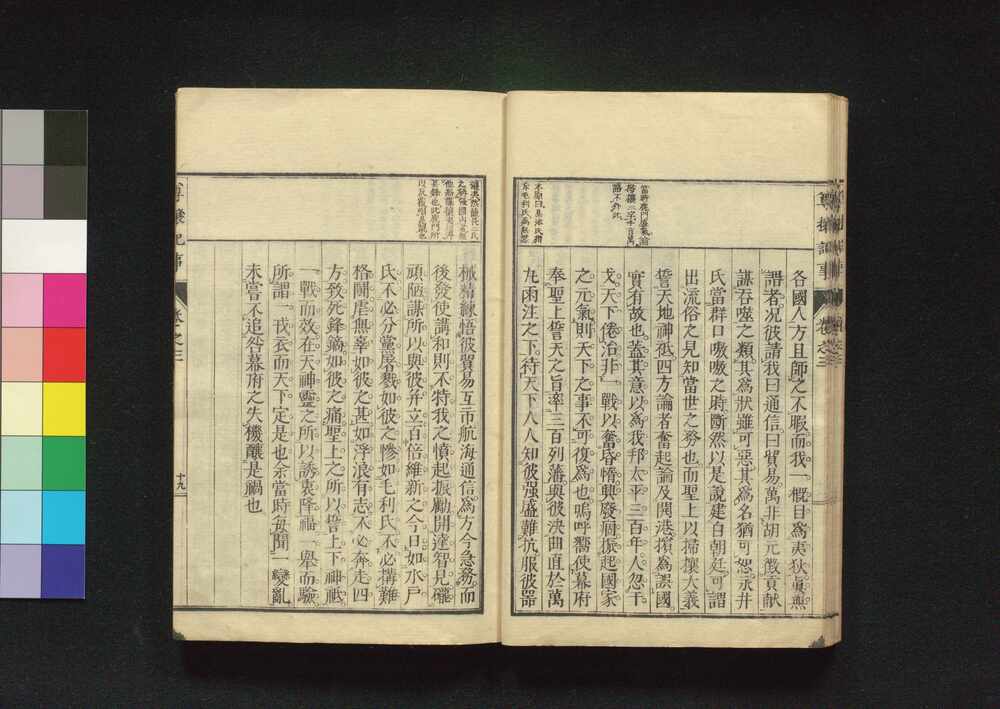 尊攘記事 卷之三
當時鹿門蓋氣
各國人方且師之不暇而我一槪目爲夷狄眞無
謂者況彼請我曰通信曰貿易萬非胡元徵貢献
謀吞噬之類其爲狀雖可惡其爲名猶可恕永井
氏當群口嗷嗷之時斷然以是說建白朝廷可謂
出流俗之見知當世之務也而聖上以掃攘大義
誓天地神祇四方論者奮起論及開港擯爲誤國
實有故也蓋其意以爲我邦太平三百年人忽干
戈天下倦冶非一戰以奮昏惰興廢痼振起國家
之元氣則天下之事不可復爲也嗚呼嚮使幕府
奉聖上誓天之旨率三百列藩與彼決曲直於萬
丸雨注之下待天下人人知彼强盛難抗服彼器
械精練悟彼貿易互市航海通信爲方今急務而
後發使講和則不特我之憤起振勵開達智見礲
頑陋謀所以與彼幷立百倍維新之今日如水戶
氏不必分黨屠戮如彼之慘如毛利氏不必搆難
格鬪虐無辜如彼之甚如浮浪有志不必奔走四
方致死鋒鏑如彼之痛聖上之所以誓上下神祇
一戰而效在天神靈之所以誘衷降福一舉而驗
所謂一戎衣而天下定是也余當時每聞一變亂
未嘗不追咎幕府之失機釀是禍也
尊攘記事 卷之三 十九